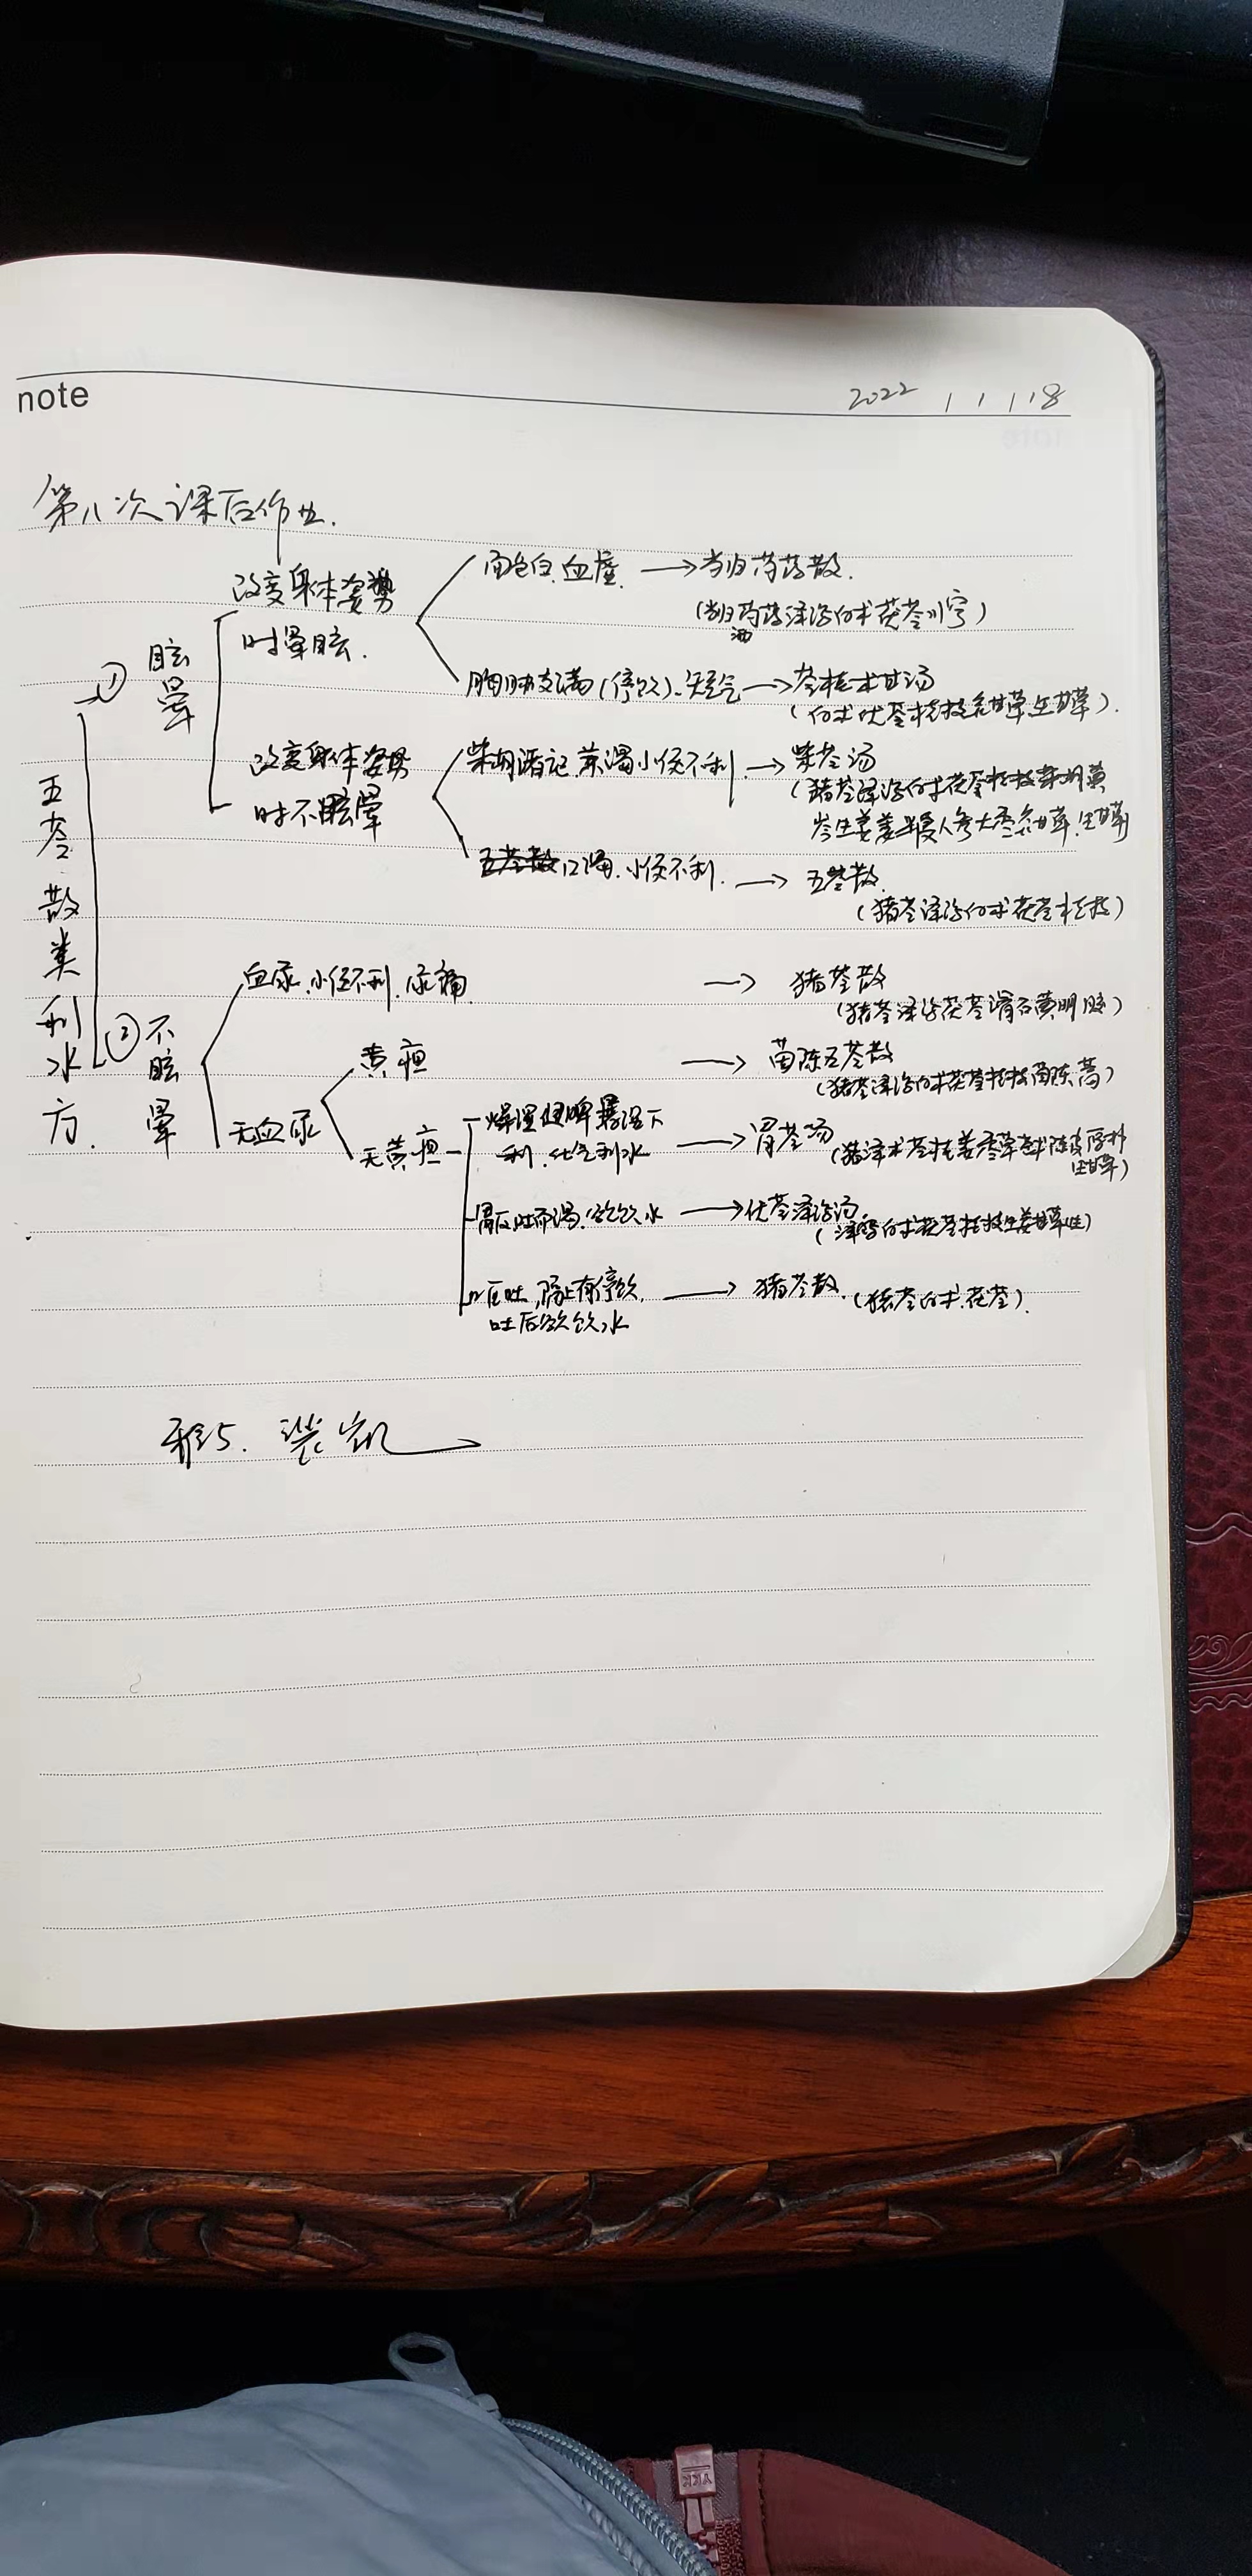 note
2022 11 18
第八次课后作业.
五苓散类利水方.
① 眩晕
改变身体姿势
时晕眩.
面色白.血虚. → 当归芍药散.
(当归芍药泽泻白术茯苓川芎)
酒
胸胁支满(停饮).短气 → 苓桂术甘汤
(白术伏苓桂枝炙甘草生甘草).
改变身体姿势
时不眩晕
柴胡诸记 兼渴小便不利. → 柴苓汤
(猪苓泽泻白术茯苓桂枝柴胡黄
芩生姜姜半夏人参大枣炙甘草.生甘草)
五苓散口渴.小便不利. → 五苓散.
(猪苓泽泻白术茯苓桂枝)
② 不眩晕
血尿.小便不利.尿痛 → 猪苓散
(猪苓泽泻茯苓滑石黄明胶)
无血尿
黄疸 → 茵陈五苓散
(猪苓泽泻白术茯苓桂枝茵陈蒿)
无黄疸
燥湿健脾 暴泻下
利.化气利水 → 胃苓汤
胃反吐而渴.欲饮水 → 伏苓泽泻汤.
呕吐,膈上有停饮, → 猪苓散.(猪苓白术.茯苓).
吐后欲饮水